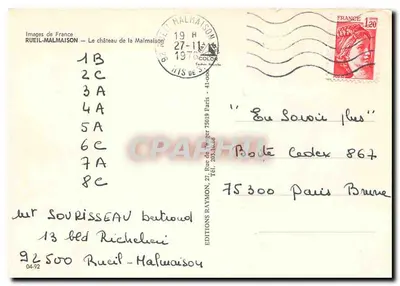 Images de France
RUEIL-MALMAISON - Le château de la Malmaison
19 H
27-11
FRANCE
1,20
1B
2C
3A
4A
5A
6C
7A
8C
"En Savoir plus"
Boite Cedex 867
75300 Paris Brune
Mr SOURISSEAU Bertrand
13 bld Richelieu
92500 Rueil-Malmaison
04-92
EDITIONS RAYMON, 27, Rue de
75019 Paris